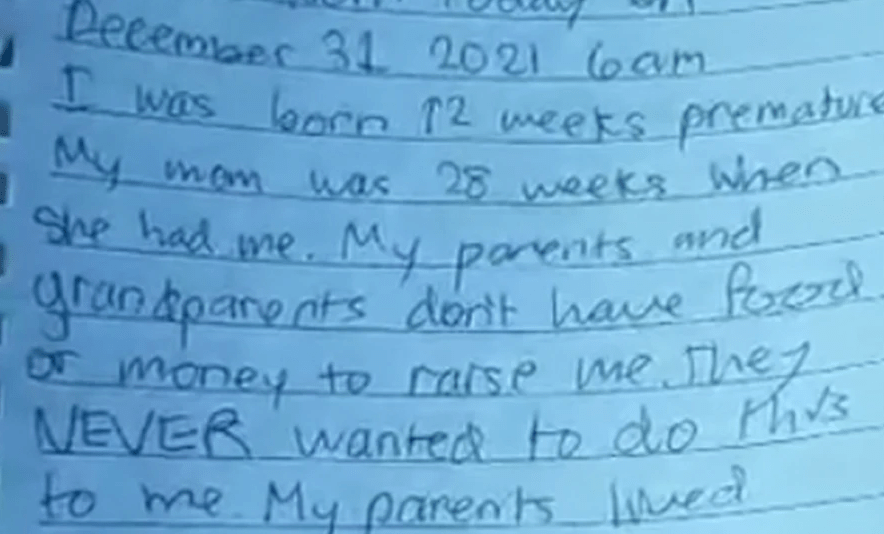 Today on
December 31 2021 6am
I was born 12 weeks premature
My mom was 28 weeks when
She had me. My parents and
grandparents don't have food
or money to raise me. They
NEVER wanted to do this
to me. My parents lived